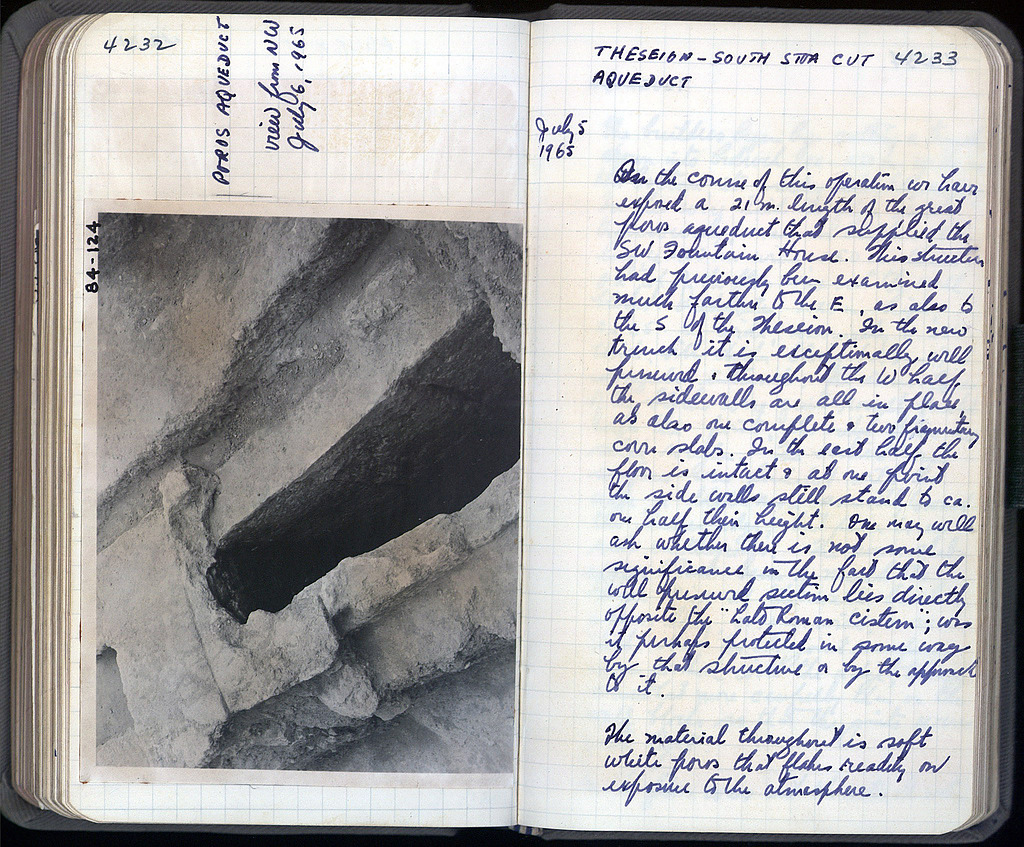 4232
POROS AQUEDUCT
view from NW
July 6, 1965
84-124
THESEION-SOUTH STOA CUT 4233
AQUEDUCT
July 5
1965
In the course of this operation we have
exposed a 21 m. length of the great
poros aqueduct that supplied the
SW Fountain House. This structure
had previously been examined
much farther to the E, as also to
the S of the Theseion. In the new
trench it is exceptionally well
preserved. Throughout the W half,
the sidewalls are all in place,
as also one complete & two fragmentary
cover slabs. In the east half the
floor is intact & at one point
the side walls still stand to ca.
one half their height. One may well
ask whether there is not some
significance in the fact that the
well preserved section lies directly
opposite the "Late Roman cistern; was
it perhaps protected in some way
by that structure or by the approach
to it.
The material throughout is soft
white poros that flakes readily on
exposure to the atmosphere.